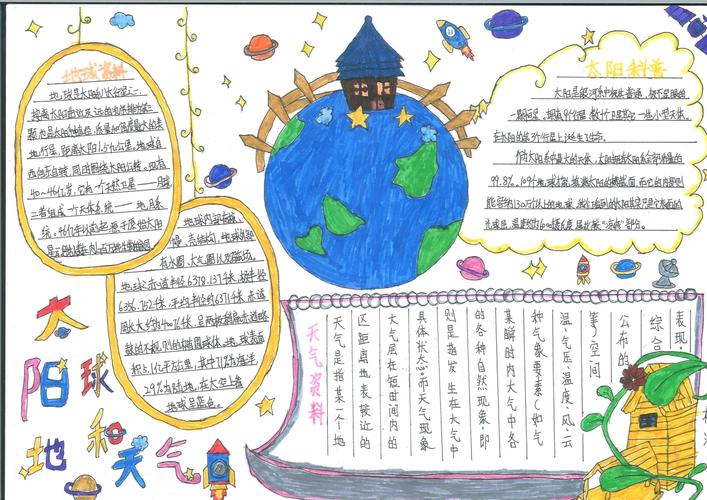 地球资料
地球是太阳系八大行星之一,
按离太阳由近及远的次序排为第三
颗,也是太阳系中直径、质量和密度最大的类
地行星,距离太阳1.5亿公里。地球自
西向东自转,同时围绕太阳公转。现有
40~46亿岁,它有一个天然卫星——月球
二者组成一个天体系统——地月系
统。46亿年以前起源于原始太阳
星云
地球内部有核、
幔、壳结构,地球外部
有水圈、大气圈以及磁场。
地球赤道半径6378.137千米,极半径
6356.752千米,平均半径约6371千米,赤道
周长大约为40076千米,呈两极稍扁赤道略
鼓的不规则的椭圆球体。地球表面
积5.1亿平方公里,其中71%为海洋
29%为陆地,在太空上看
地球呈蓝色。
太阳科普
太阳是银河系中极其普通,极不显眼的
一颗恒星,拥有9个行星,数十卫星和一些小型天体。
在太阳的第3个行星上诞生了生命。
作为太阳系中最大的天体,太阳拥有太阳系全部质量的
99.8%,109个地球才能填满太阳的横截面,而它的内部则
能容纳130万个以上的地球,
太
阳球
地和天气
天气资料
天气是指某一个地
区距离地表较近的
大气层在短时间内的
具体状态。而天气现象
则是指发生在大气中
的各种自然现象,即
某瞬时内大气中各
种气象要素(如气
温、气压、湿度、风、云
等)空间
公布的
综合
表现。